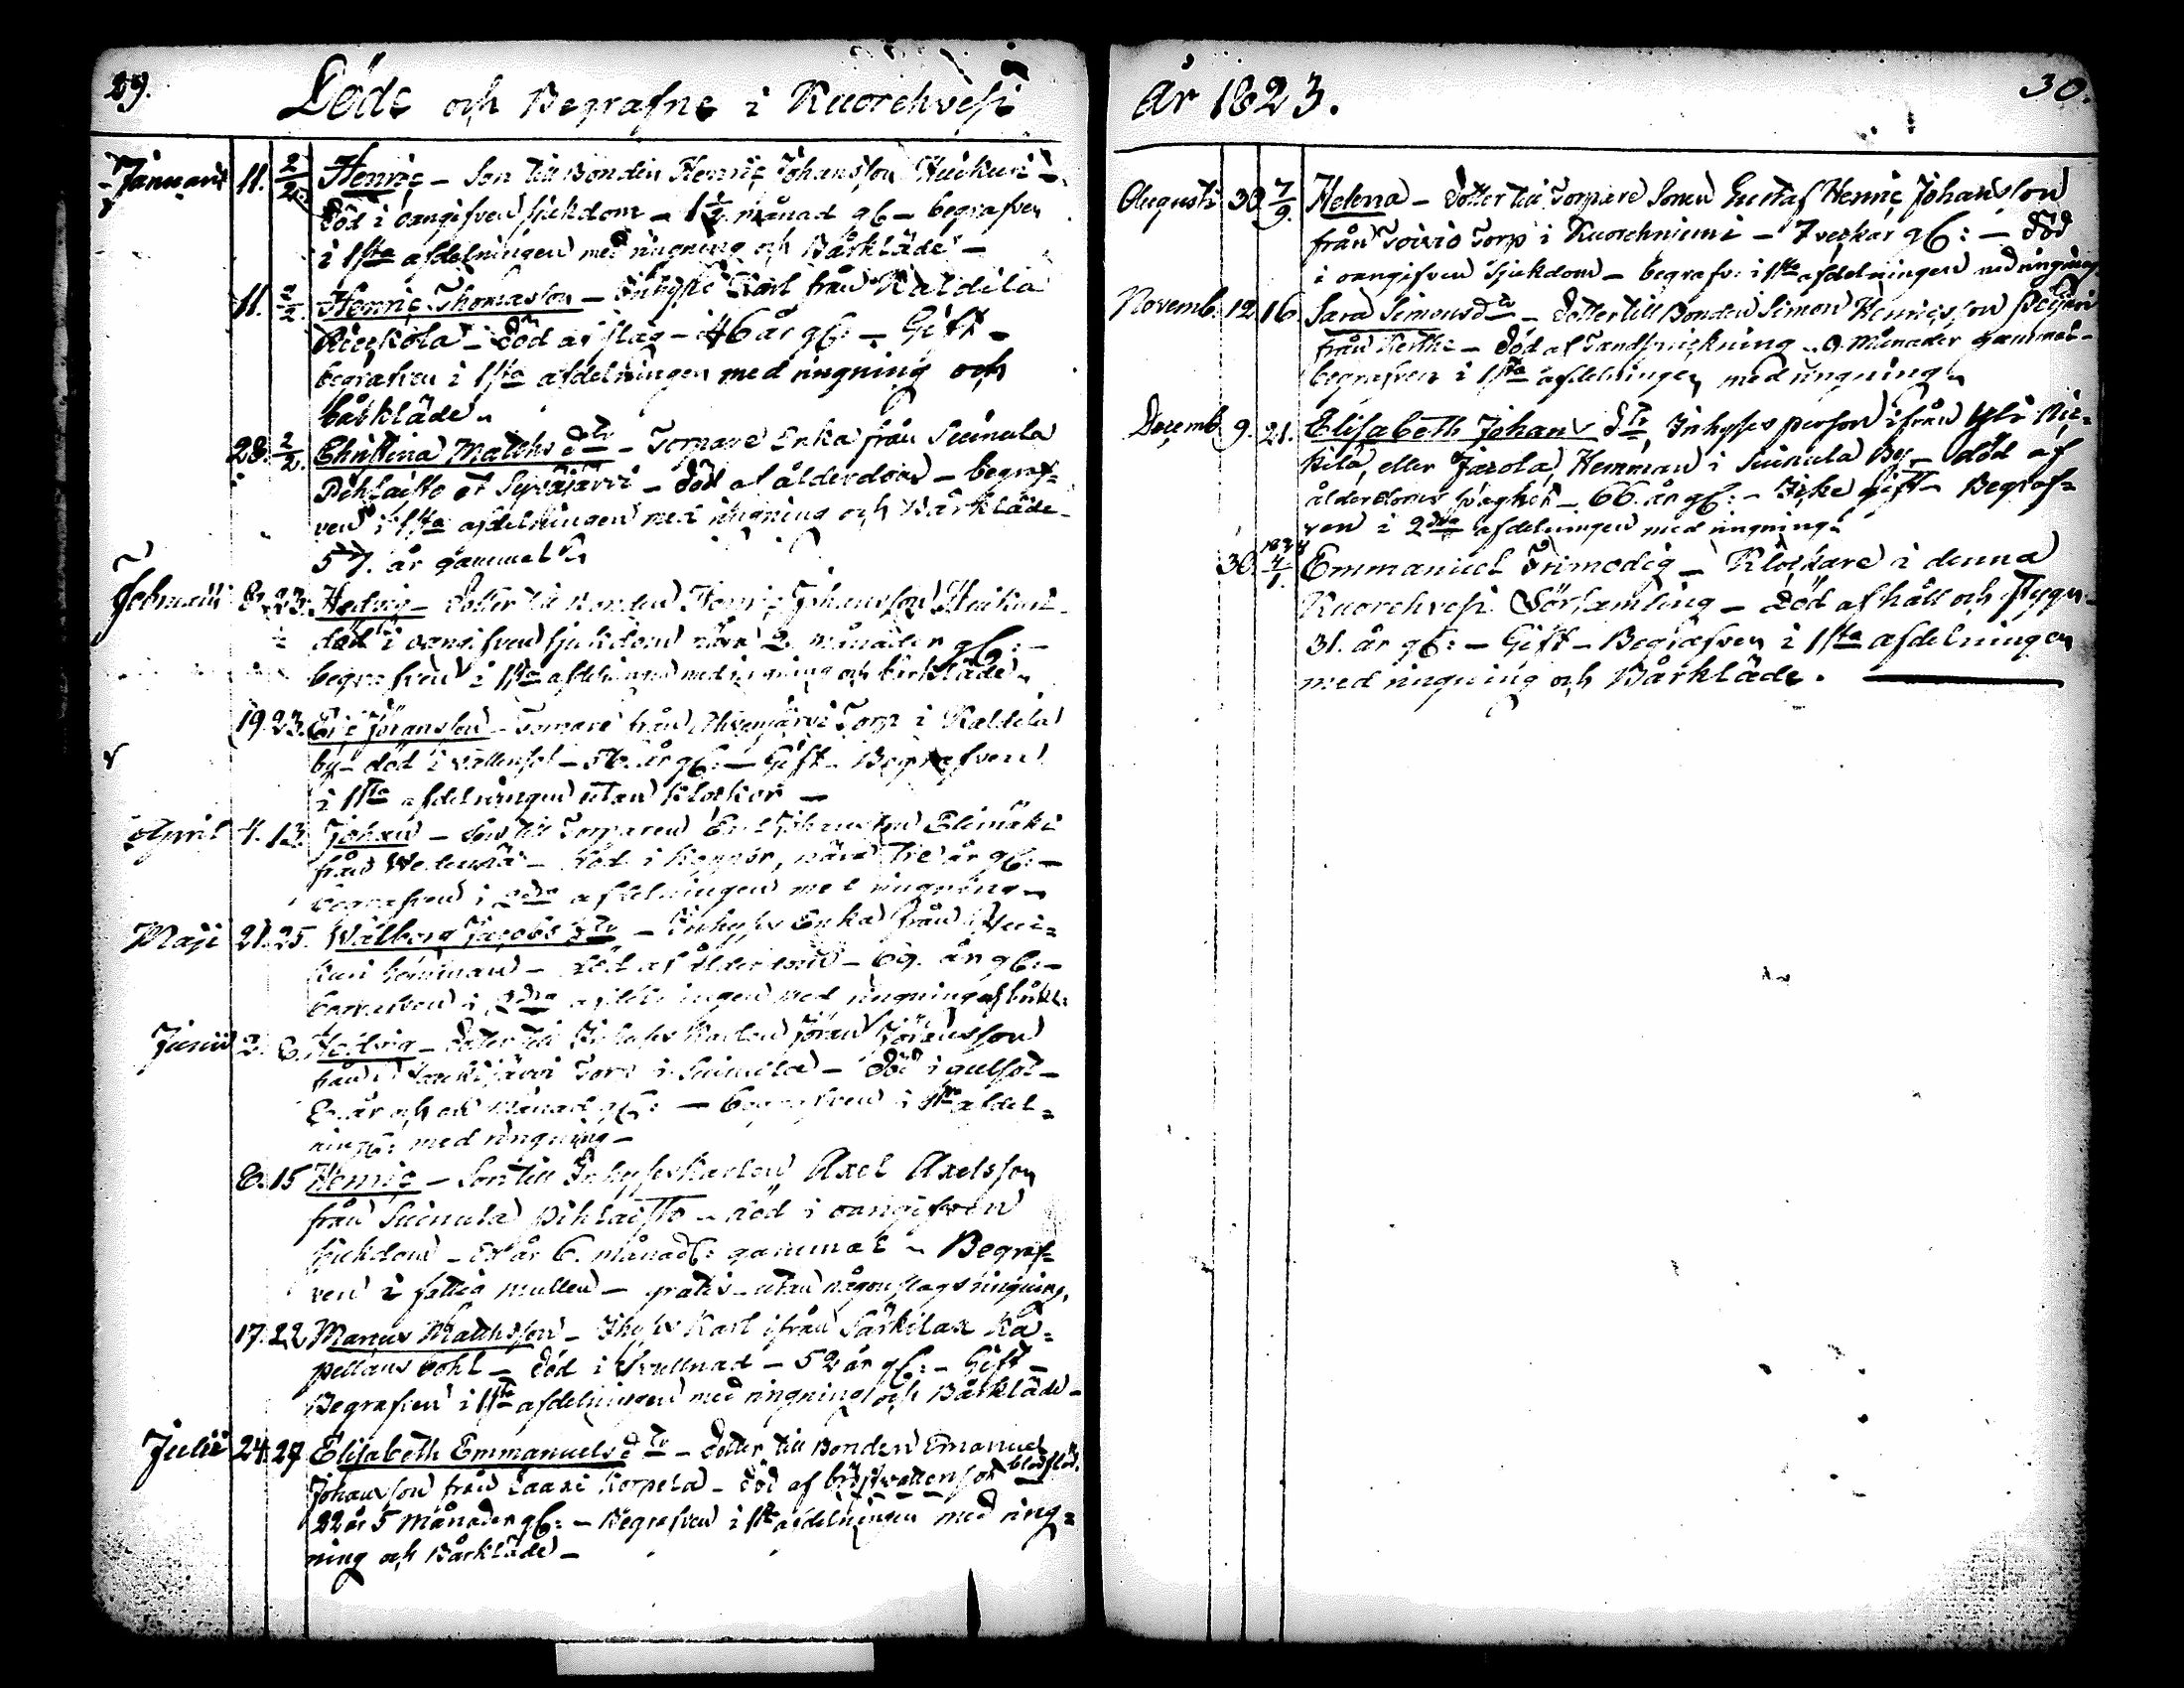 29.
Döde och Begrafne i Kuorehvesi
Januarii 11. 2/2. Henric - Son till Bonden Henric Johansson Heickuri -
död i oangifven sjukdom - 1 1/2 månad gl - begrafven
i 1sta afdelningen med ringning och Bårkläde -
11. 2/2. Henric Thomasson - Inhyses Karl från Kaldila
- död af slag - 46 år gl: - Gift -
begrafven i 1sta afdelningen med ringning och
bårkläde.
28. 2/2. Christina Matthsdtr - Torpare Enka från Suinula
Pihlaisto - död af ålderdom - begraf-
ven i 1sta afdelningen med ringning och Bårkläde -
57. år gammal.
Februarii 8. 23. Hedvig - Dotter till Bonden Henric Johansson Heickuri
död i oangifven sjukdom nära 2 månader gl: -
begrafven i 1sta afdelningen med ringning och bårkläde.
19. 23. Eric Jöransson - Torpare från Torp i Kaldila
by - död i vattensot - 56. år gl: - Gift - Begrafven
i 1sta afdelningen utan klockor -
April 4. 13. Johan - Son till Torparen Eric Johansson Elimäki
från - död i Koppor, nära tre år gl: -
begrafven i 2dra afdelningen med ringning -
Maji 21. 25. Wålborg Jacobsdtr - Inhyses Enka från Hei-
kuri hemman - död af ålderdom - 69. år gl: -
begrafven i 2dra afdelningen med ringning och bårkl:
Junii 2. 8. Hedvig - Dotter till Inhyses Karlen Jöran Jöransson
från Torp i Suinula - död i gulsot -
år och en månad gl: - begrafven i 1sta afdel-
ning: med ringning -
8. 15 Henric - Son till Inhyseskarlen Axel Axelsson
från Suinula Pihlaisto - död i oangifven
sjukdom - år 6. månad: gammal - Begraf-
ven i fattia mullen - gratis - utan någon slags ringning.
17. 22 Marcus Matthsson - Ihyses Karl ifrån Särkilax Ka-
pellans bohl - död i Svullnad - 52 år gl: - Gift -
Begrafven i 1sta afdelningen med ringning och Bårkläde -
Julii 24. 27 Elisabeth Emmanuelsdtr - Dotter till Bonden Emanuel
Johansson från Laari Korpela - död af bröstvattensot
22 år 5 månader gl: - Begrafven i 1sta afdelningen med ring-
ning och Bårkläde -
år 1823.
30.
Augusti 30. 7/9. Helena - dotter till Torpare Sonen Gustaf Henric Johansson
från Toivio Torp i Kuorehniemi - 7 veckor gl: - död
i oangifven sjukdom - begrafv: i 1sta afdelningen med ringning
Novemb. 12. 16. Sara Simonsdtr - Dotter till Bonden Simon Henricsson
från - död af Tandsprickning - 9. Månader gammal -
begrafven i 1sta afdelningen med ringning.
Decemb. 9. 21. Elisabeth Johansdtr, Inhyses person ifrån
eller Jazola, Hemman i Suinula By - död af
ålderdoms svaghet - 66. år gl: - Icke gift - Begraf-
ven i 2dra afdelningen med ringning.
30. 1824 4/1. Emmanuel Frimodig - Klockare i denna
Kuorehvesi Församling - död af håll och styng -
31. år gl: - Gift - Begrafven i 1sta afdelningen
med ringning och Bårkläde.